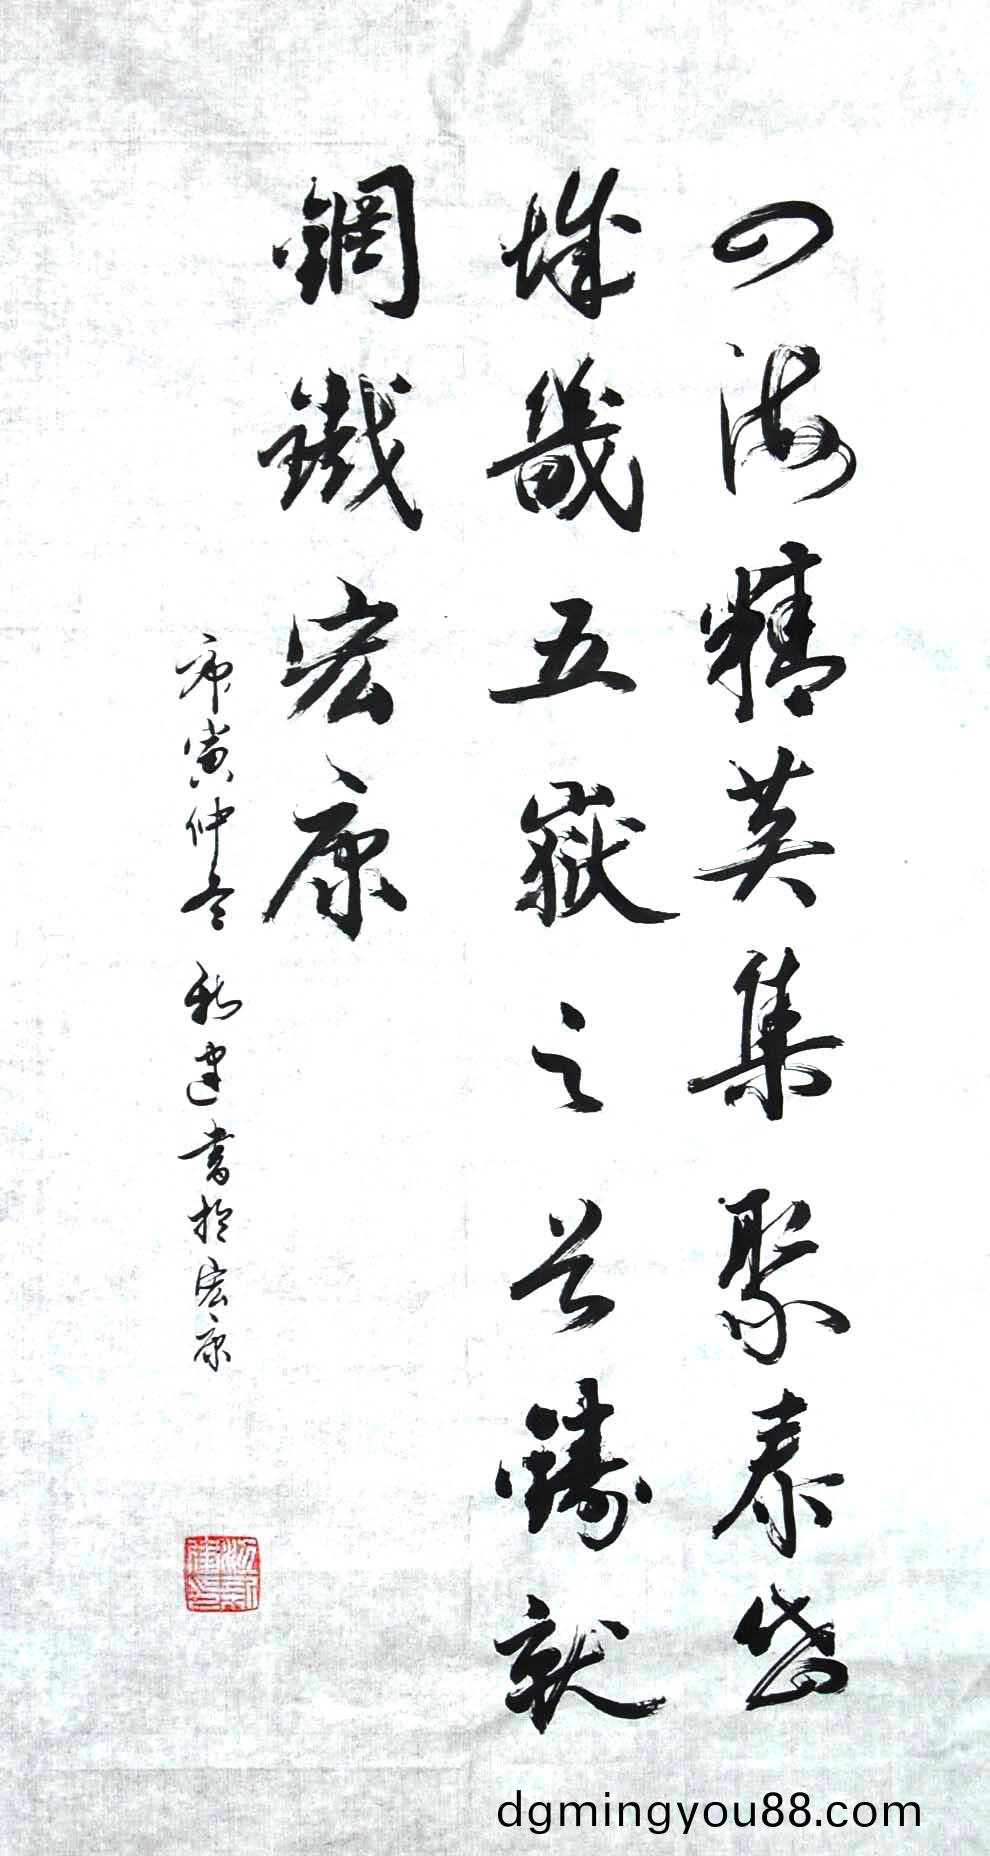 四海精英集聚泰岱
城畿五嶽之首鑄就
鋼鐵宏康
庚寅仲冬 新建書於宏康
dgmingyou88.com